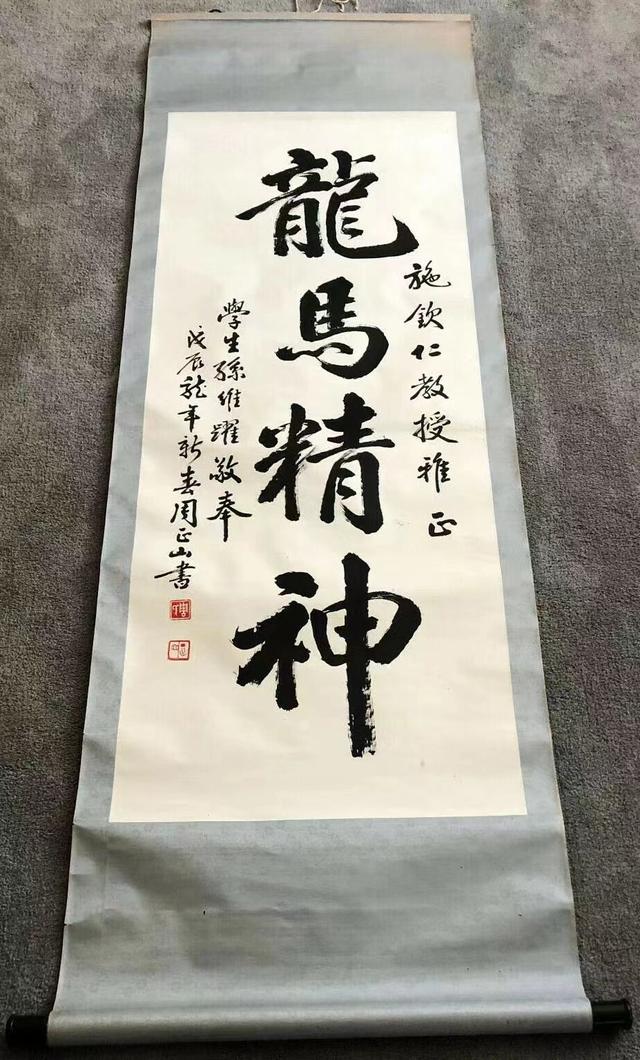 龍馬精神
施欽仁教授雅正
學生孫維躍敬奉
戊辰龍年新春周正山書